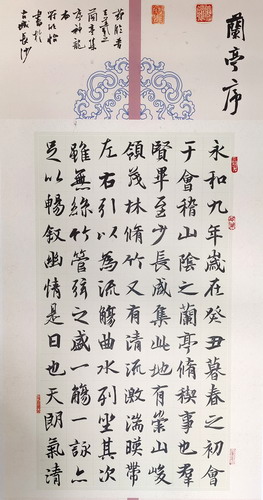 蘭亭序
王羲之
蘭亭集
序神龍
本
書於
長沙
永和九年歲在癸丑暮春之初會
于會稽山陰之蘭亭脩稧事也群
賢畢至少長咸集此地有崇山峻
領茂林脩竹又有清流激湍暎帶
左右引以為流觴曲水列坐其次
雖無絲竹管弦之盛一觴一詠亦
足以暢叙幽情是日也天朗氣清